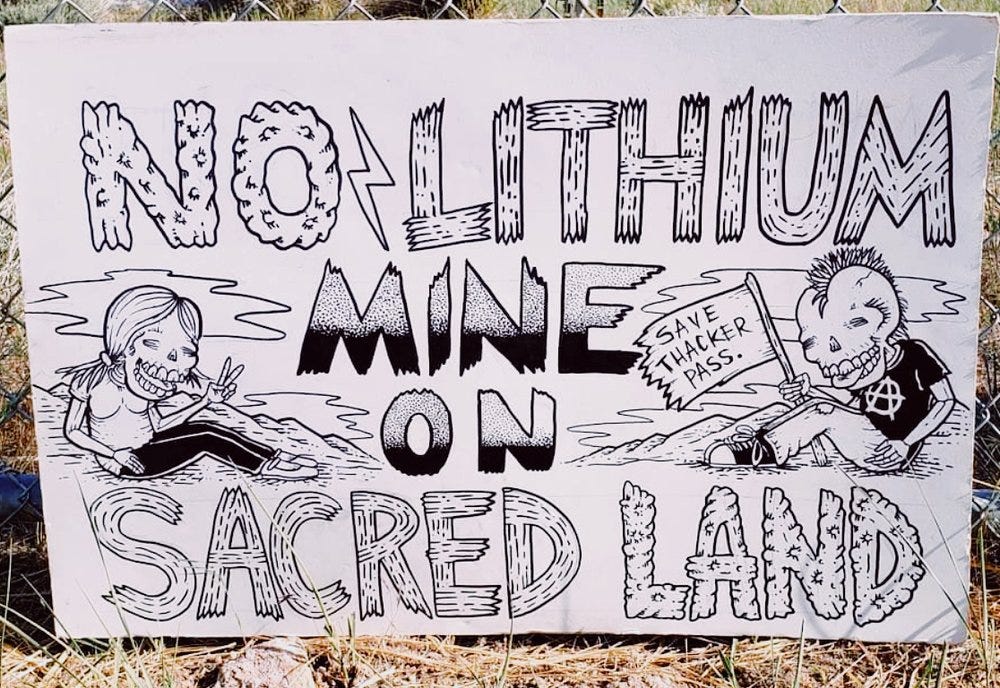 NO LITHIUM
MINE
ON
SACRED LAND
SAVE
THACKER
PASS.